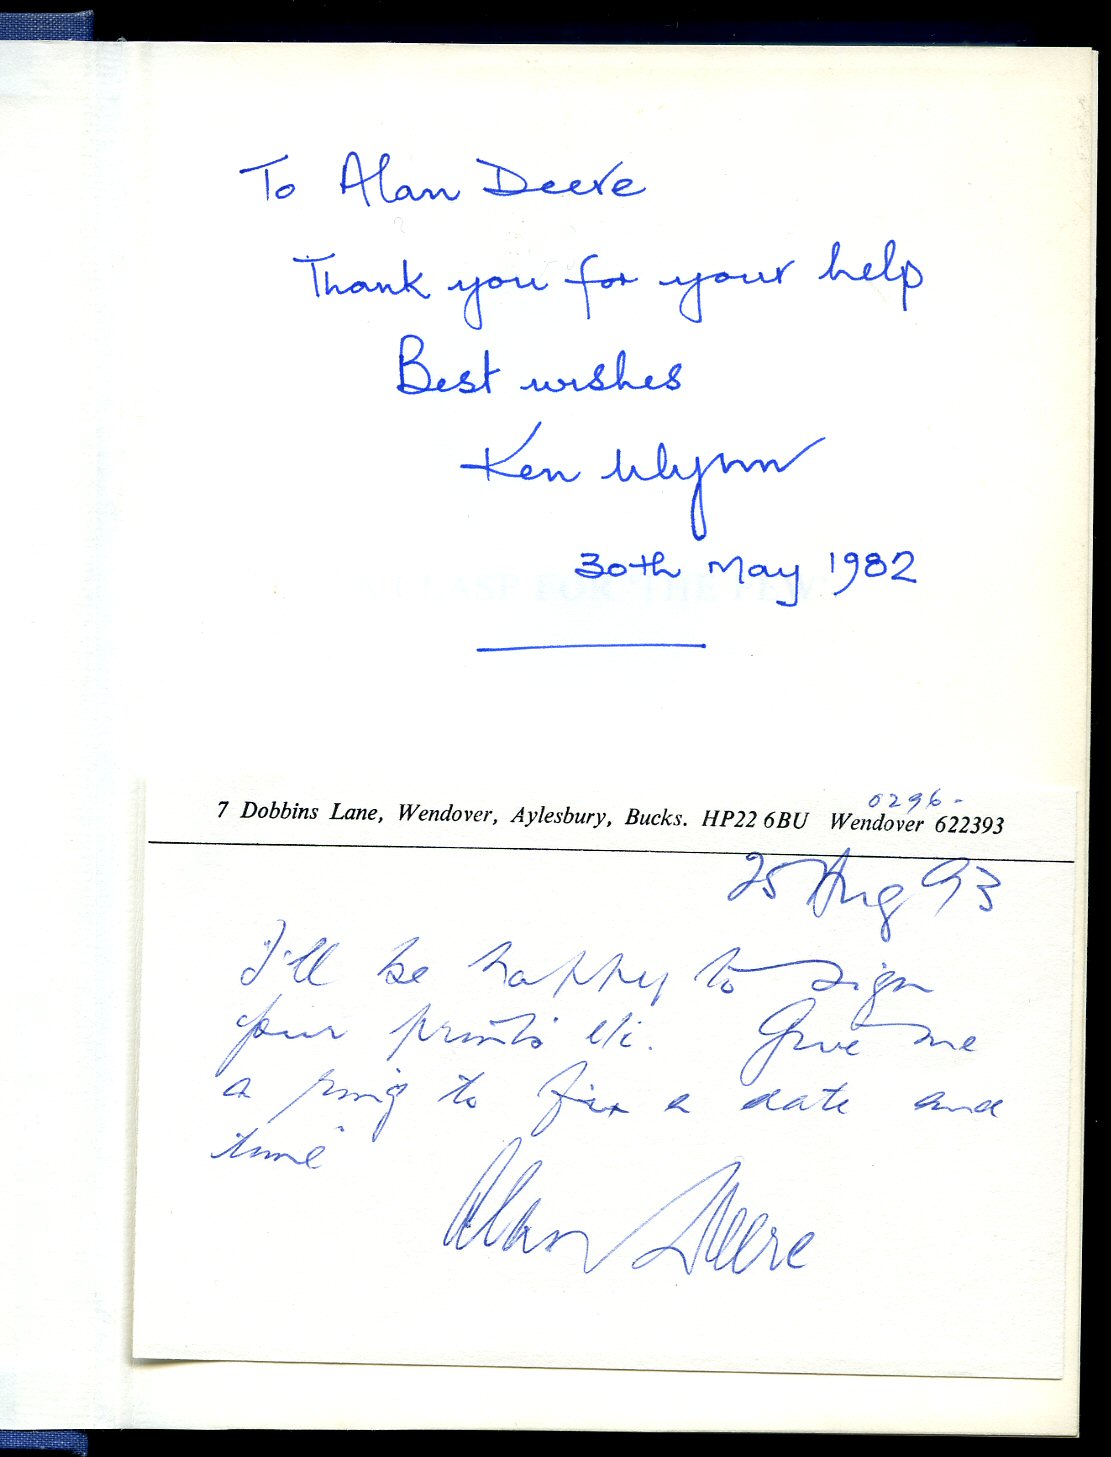 To Alan Deere
Thank you for your help
Best wishes
Ken Wynn
30th May 1982
0296-
7 Dobbins Lane, Wendover, Aylesbury, Bucks. HP22 6BU Wendover 622393
25 Aug 93
I'll be happy to sign
your prints etc. Give me
a ring to fix a date and
time
Alan Deere